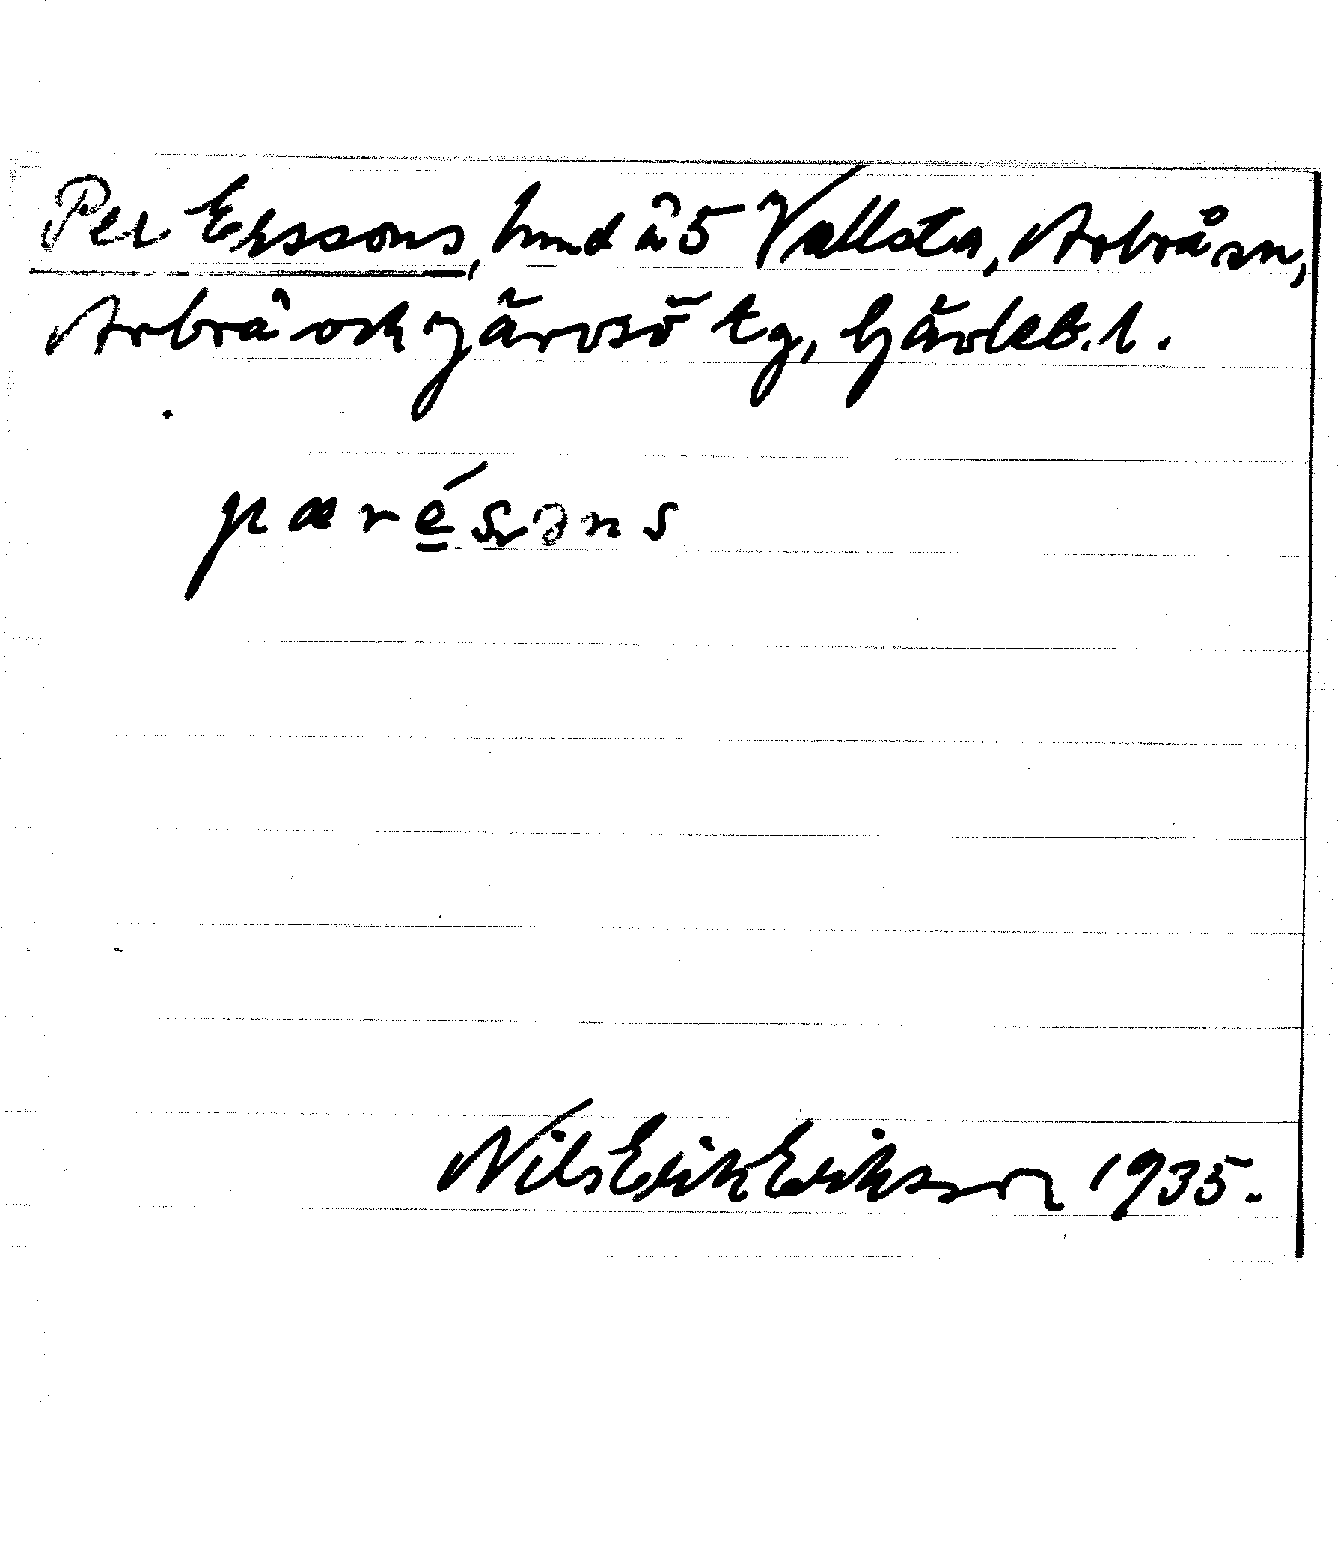 Per Erssons, hmd å 5 Vallsta, Arbrå sn,
Arbrå och Järvsö tg, Gävleb. l.
pæré̲sәns
Nils Erik Eriksson 1935.